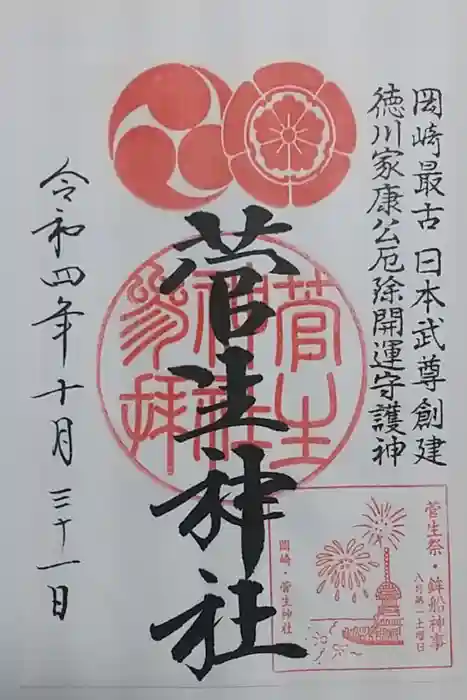 岡崎最古 日本武尊創建
徳川家康公厄除開運守護神
菅生神社
菅生
神社
参拝
令和四年十月三十一日
菅生祭・鉾船神事
八月第一土曜日
岡崎・菅生神社